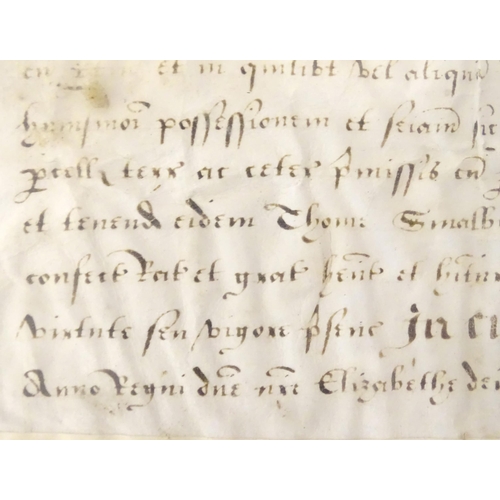 et in quilibt vel aliquam
hmoi possessionem et seiam
pcell terr ac ceter pmissis cu
et tenend eidem Thome Smalb
confect Rat et grat hent et hitur
virtute seu vigore psenc In cu
Anno Regni dne nre Elizabethe dei